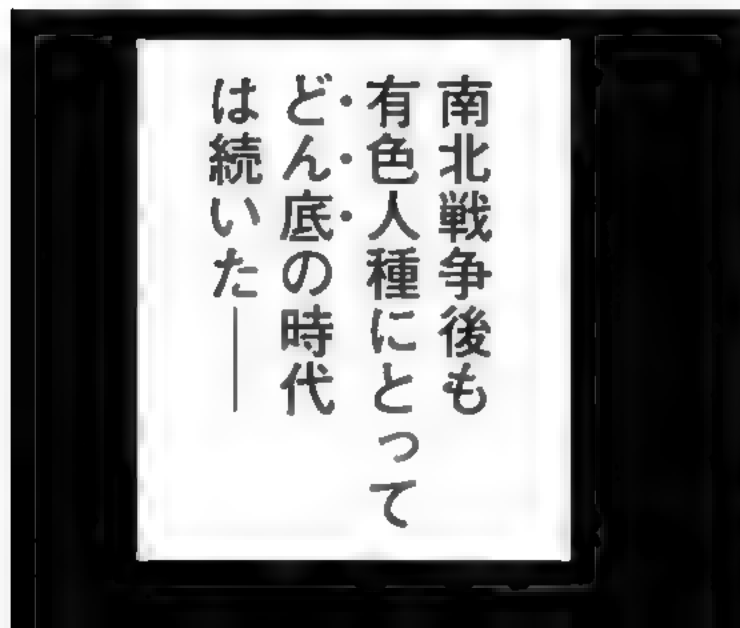 南北戦争後も
有色人種にとって
どん底の時代
は続いた──